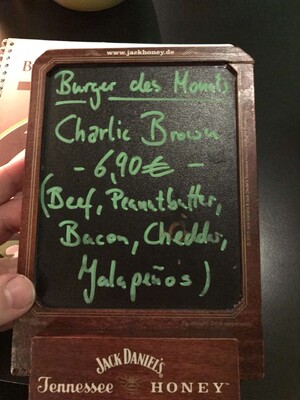 www.jackhoney.de
Burger des Monats
Charlie Brown
- 6,90€ -
(Beef, Peanutbutter,
Bacon, Cheddar,
Jalapeños)
JACK DANIEL'S
Tennessee HONEY